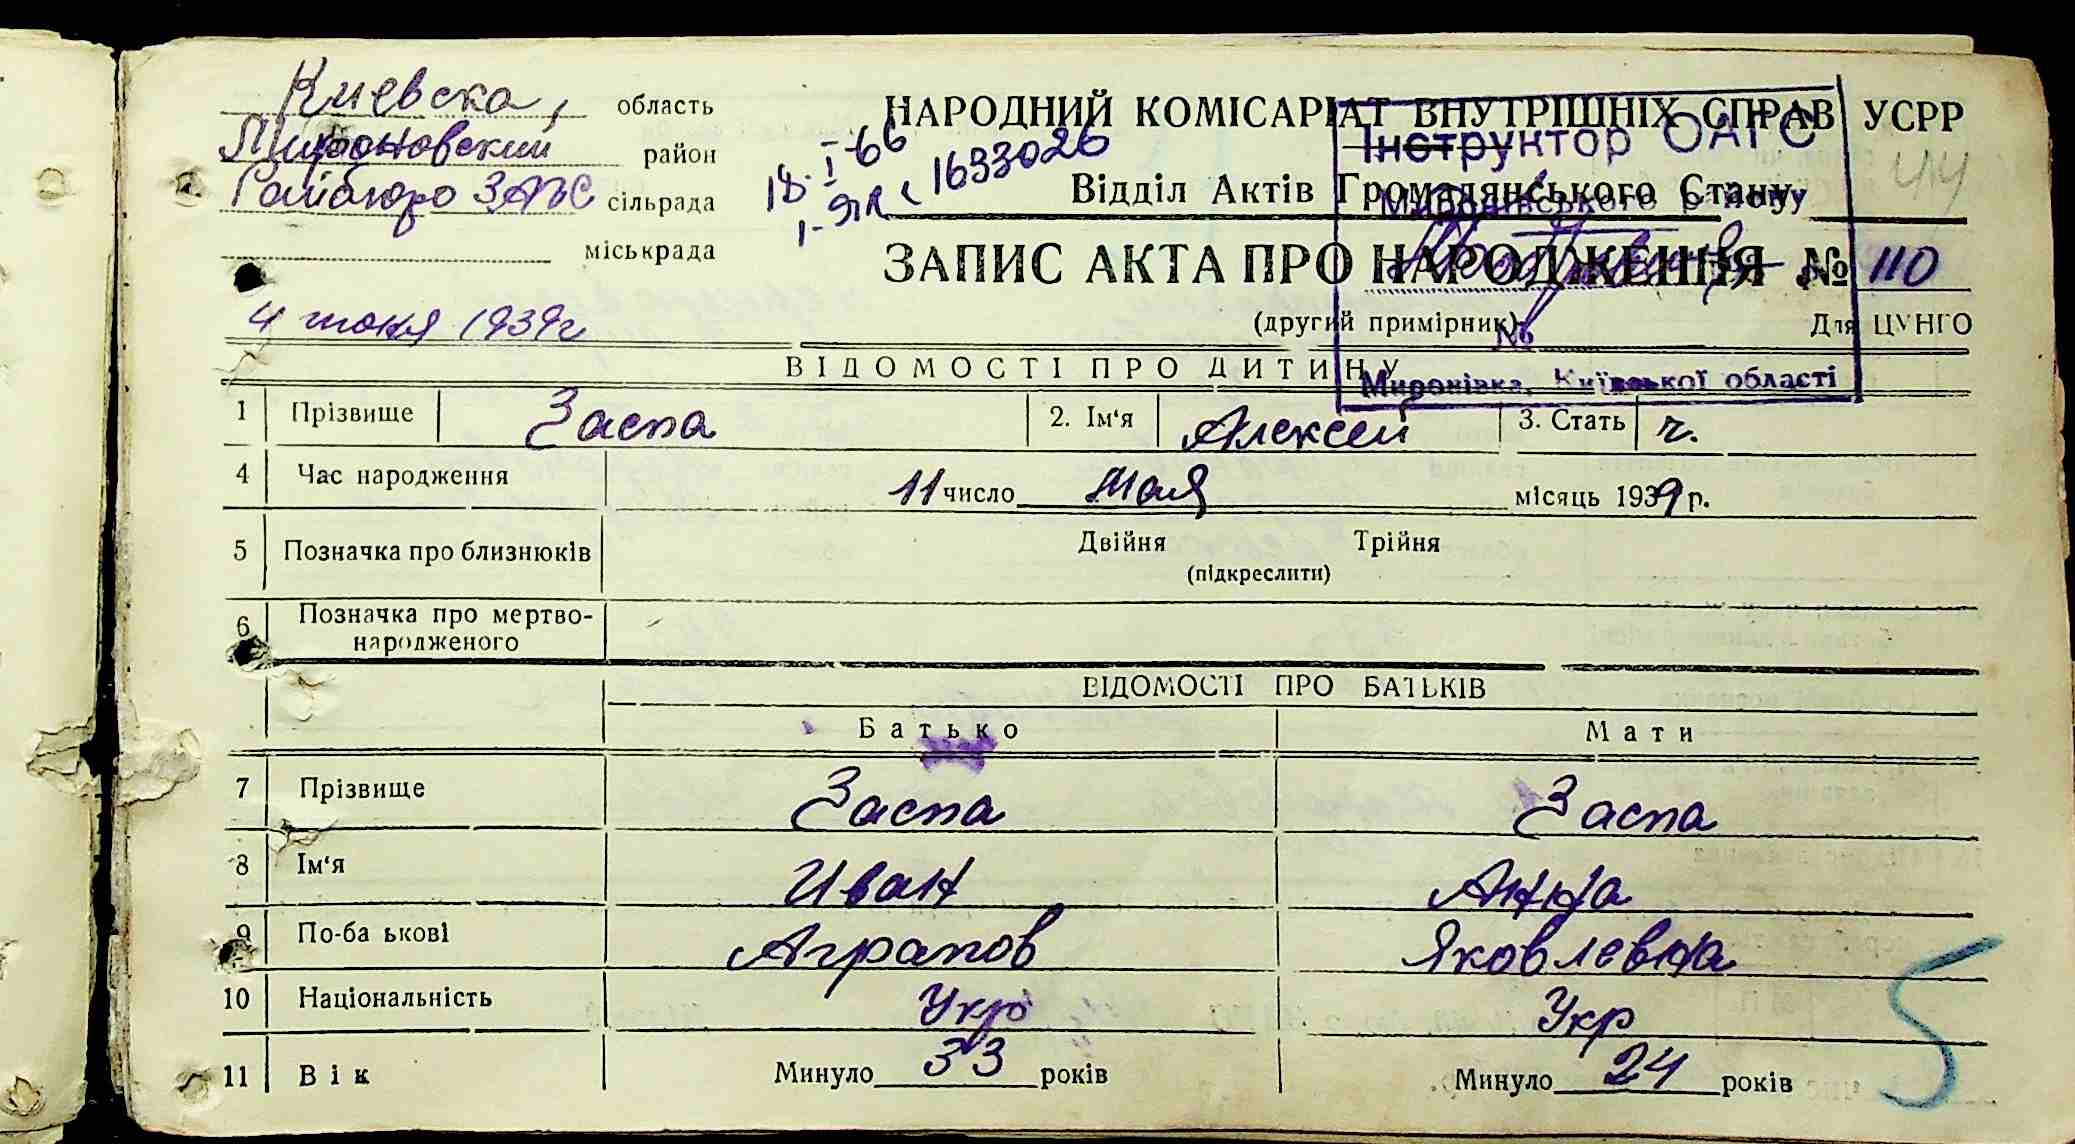 Киевска, область
Мироновский район
Райбюро ЗАГС сільрада
міськрада
4 июня 1939г
18.I-66
І-ЯЛ 1633026
НАРОДНИЙ КОМІСАРІАТ ВНУТРІШНІХ СПРАВ УСРР
Інструктор ОАГС
44
Відділ Актів Громадянського Стану
Миронівського р-ну
ЗАПИС АКТА ПРО НАРОДЖЕННЯ № 110
(другий примірник)
Для ЦУНГО
Миронівка, Київської області
ВІДОМОСТІ ПРО ДИТИНУ
1 Прізвище Заспа 2. Ім'я Алексей 3. Стать ч.
4 Час народження 11 число мая місяць 1939 р.
5 Позначка про близнюків Двійня Трійня
(підкреслити)
6 Позначка про мертво-
народженого
ВІДОМОСТІ ПРО БАТЬКІВ
Батько Мати
7 Прізвище Заспа Заспа
8 Ім'я Иван Анна
9 По-ба ькові Аграпов Яковлевна
10 Національність Укр Укр
11 Вік Минуло 33 років Минуло 24 років
5